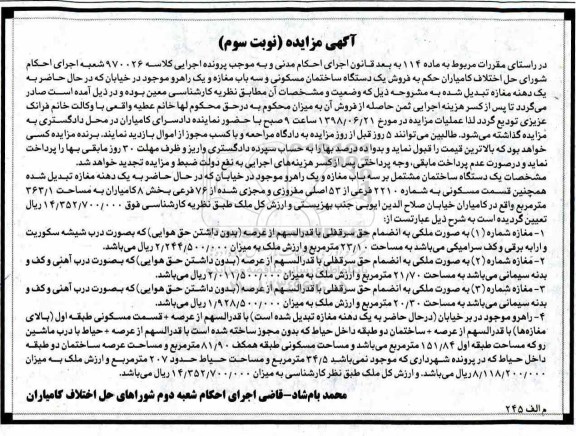 آگهی مزایده (نوبت سوم)
در راستای مقررات مربوط به ماده ۱۱۴ به بعد قانون اجرای احکام مدنی و به موجب پرونده اجرایی کلاسه ۹۷۰۰۲۶ شعبه اجرای احکام
شورای حل اختلاف کامیاران حکم به فروش یک دستگاه ساختمان مسکونی و سه باب مغازه و یک راهرو موجود در خیابان که در حال حاضر به
یک دهنه مغازه تبدیل شده به مشروحه ذیل که وضعیت و مشخصات آن مطابق نظریه کارشناسی معین بوده و در ذیل آمده است صادر
می‌گردد تا پس از کسر هزینه اجرایی ثمن حاصله از فروش آن به میزان محکوم به در حق محکوم لها خانم عطیه واقعی با وکالت خانم فرانک
عزیزی تودیع گردد لذا عملیات مزایده در مورخ ۱۳۹۸/۰۶/۲۱ ساعت ۹ صبح با حضور نماینده دادسرای کامیاران در محل دادگستری به
مزایده گذاشته می‌شود. طالبین می‌توانند ۵ روز قبل از روز مزایده به دادگاه مراجعه و با کسب مجوز از اموال بازدید نمایند. برنده مزایده کسی
خواهد بود که بالاترین قیمت را قبول نماید و بداوه ده درصد بها را به حساب سپرده دادگستری واریز و ظرف مهلت ۳۰ روز مابقی بها را پرداخت
نماید و درصورت عدم پرداخت مابقی، وجه پرداختی پس از کسر هزینه‌های اجرایی به نفع دولت ضبط و مزایده تجدید خواهد شد.
مشخصات یک دستگاه ساختمان مشتمل بر سه باب مغازه و یک راهرو موجود در خیابان که در حال حاضر به یک دهنه مغازه تبدیل شده
همچنین قسمت مسکونی به شماره ۲۲۱۰ فرعی از ۵۳ اصلی مفروزی و مجزی شده از ۷۶ فرعی بخش ۸ کامیاران به مساحت ۳۶۳/۱
مترمربع واقع در کامیاران خیابان صلاح الدین ایوبی جنب بهزیستی و ارزش کل ملک طبق نظریه کارشناسی فوق ۱۴/۳۵۲/۷۰۰/۰۰۰ ریال
تعیین گردیده است به شرح ذیل عبارتست از:
۱- مغازه شماره (۱) به صورت ملکی به انضمام حق سرقفلی با قدرالسهم از عرصه (بدون داشتن حق هوایی) که بصورت درب شیشه سکوریت
و ارابه برقی و کف سرامیکی می‌باشد به مساحت ۲۳/۱۰ مترمربع و ارزش ملک به میزان ۲/۲۴۴/۵۰۰/۰۰۰ ریال می‌باشد.
۲- مغازه شماره (۲) به صورت ملکی به انضمام حق سرقفلی با قدرالسهم از عرصه (بدون داشتن حق هوایی) که بصورت درب آهنی و کف و
بدنه سیمانی می‌باشد به مساحت ۲۱/۷۰ مترمربع و ارزش ملک به میزان ۲/۰۶۱/۵۰۰/۰۰۰ ریال می‌باشد.
۳- مغازه شماره (۳) به صورت ملکی به انضمام حق سرقفلی با قدرالسهم از عرصه (بدون داشتن حق هوایی) که بصورت درب آهنی و کف و
بدنه سیمانی می‌باشد به مساحت ۲۰/۳۰ مترمربع و ارزش ملک به میزان ۱/۹۲۸/۵۰۰/۰۰۰ ریال می‌باشد.
۴- راهرو موجود در بر خیابان (درحال حاضر به یک دهنه مغازه تبدیل شده است) با قدرالسهم از عرصه + قسمت مسکونی طبقه اول (بالای
مغازه‌ها) با قدرالسهم از عرصه + ساختمان دو طبقه داخل حیاط که بدون مجوز ساخته شده است با قدرالسهم از عرصه + حیاط با درب ماشین
رو که مساحت طبقه اول ۱۵۱/۸۴ مترمربع می‌باشد و مساحت مسکونی طبقه همکف ۸۱/۹۰ مترمربع و مساحت عرصه ساختمان دو طبقه
داخل حیاط که در پرونده شهرداری که موجود نمی‌باشد ۳۴/۵ مترمربع و مساحت حیاط حدود ۲۰۷ مترمربع و ارزش ملک به میزان
۸/۱۱۸/۲۰۰/۰۰۰ ریال می‌باشد. و ارزش کل ملک طبق نظر کارشناسی به میزان ۱۴/۳۵۲/۷۰۰/۰۰۰ ریال می‌باشد.
محمد بام‌شاد-قاضی اجرای احکام شعبه دوم شوراهای حل اختلاف کامیاران
م الف ۲۴۵